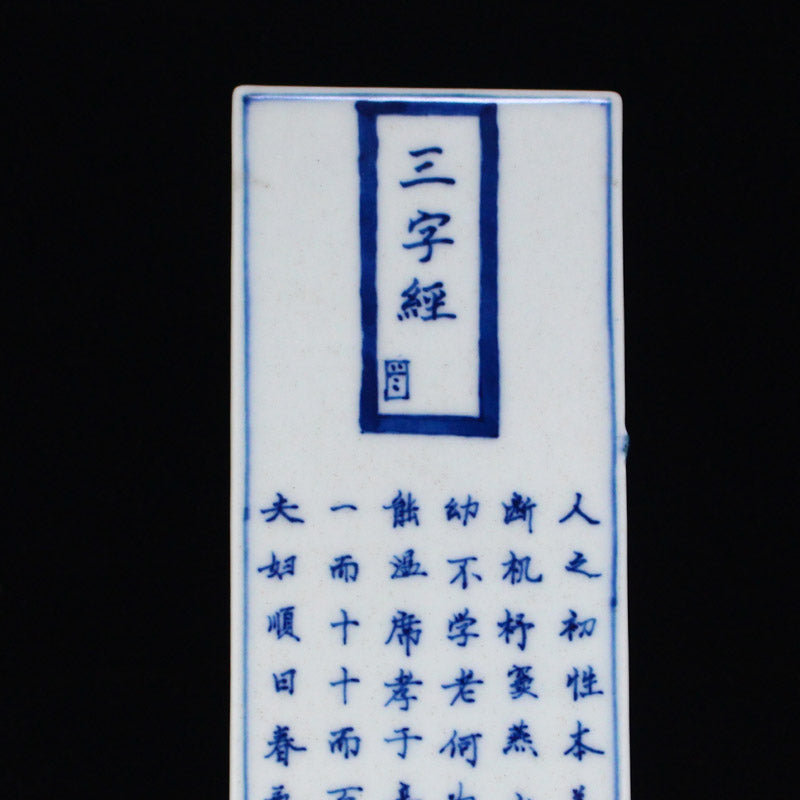 三字經
人之初性本
断机杼窦燕
幼不学老何
能温席孝于
一而十十而百
夫妇順曰春